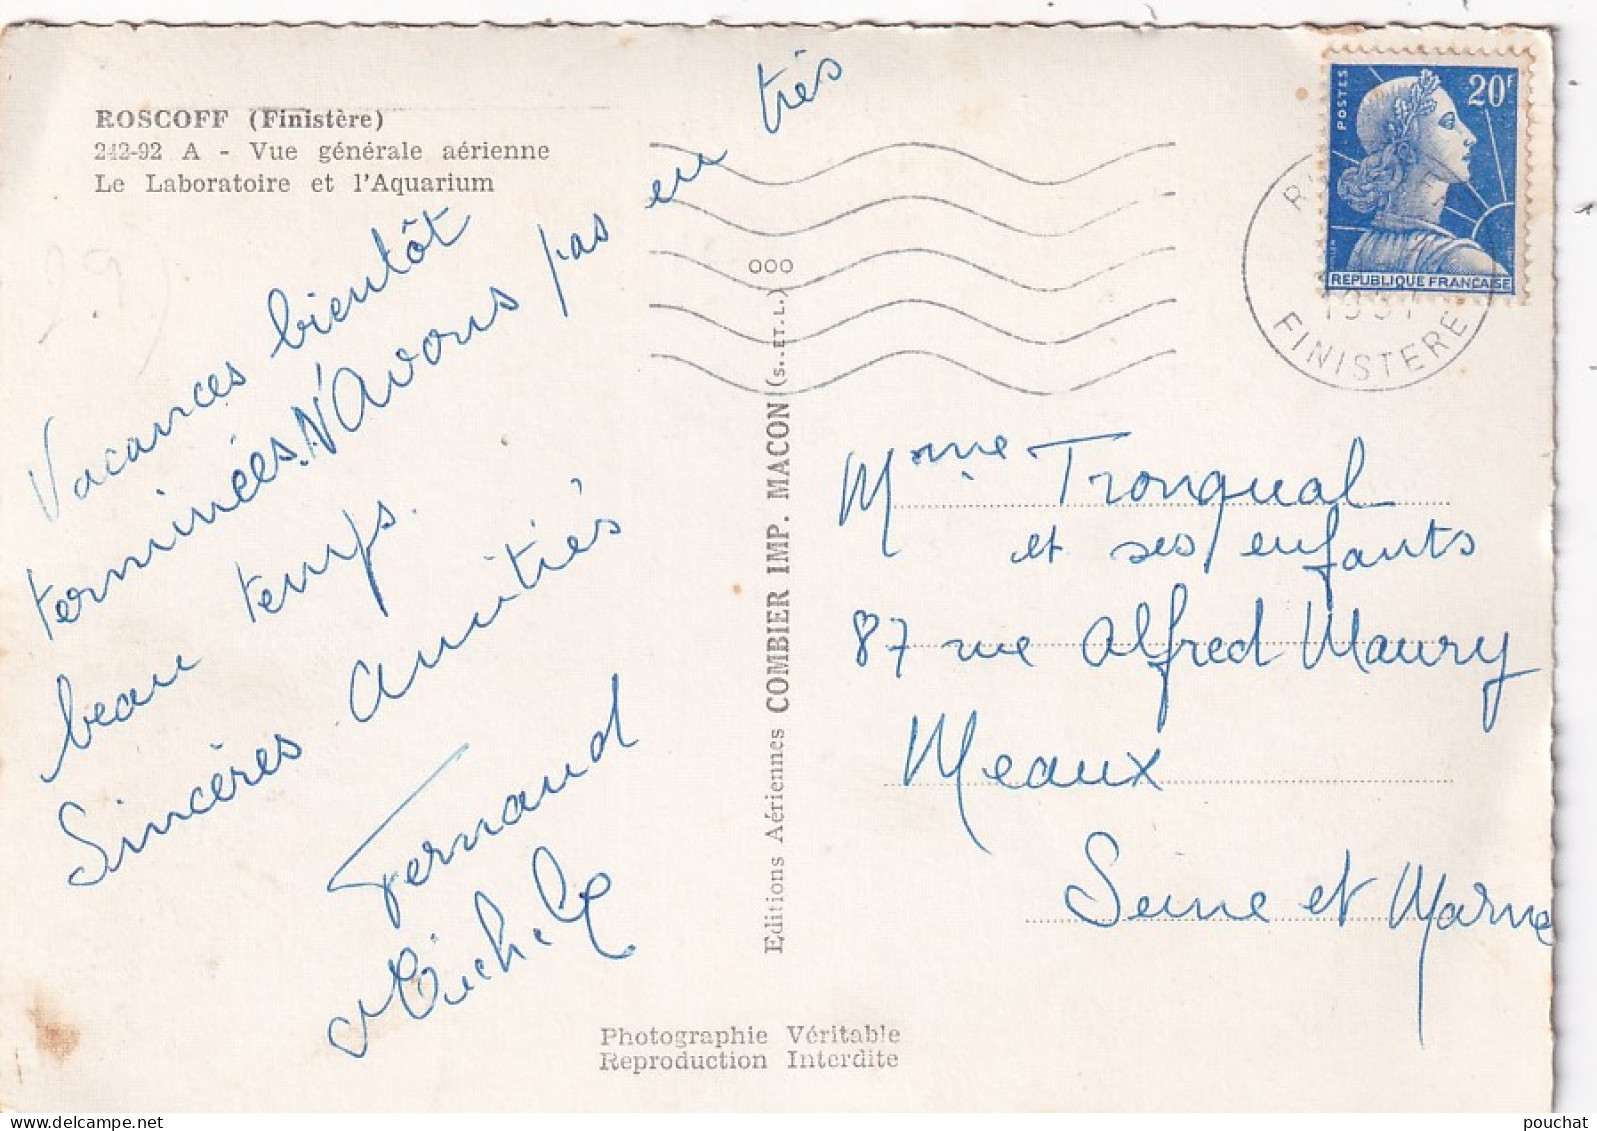 ROSCOFF (Finistère)
242-92 A - Vue générale aérienne
Le Laboratoire et l'Aquarium
29)
Vacances bientôt
terminées. N'Avons pas eu très
beau temps.
Sincères amitiés
Fernand
Michèle
Editions Aériennes COMBIER IMP. MACON (S. ET. L.)
000
POSTES
20F
REPUBLIQUE FRANÇAISE
FINISTERE
Mme Tronqual
et ses enfants
87 rue Alfred Maury
Meaux
Seine et Marne
Photographie Véritable
Reproduction Interdite
pouchat